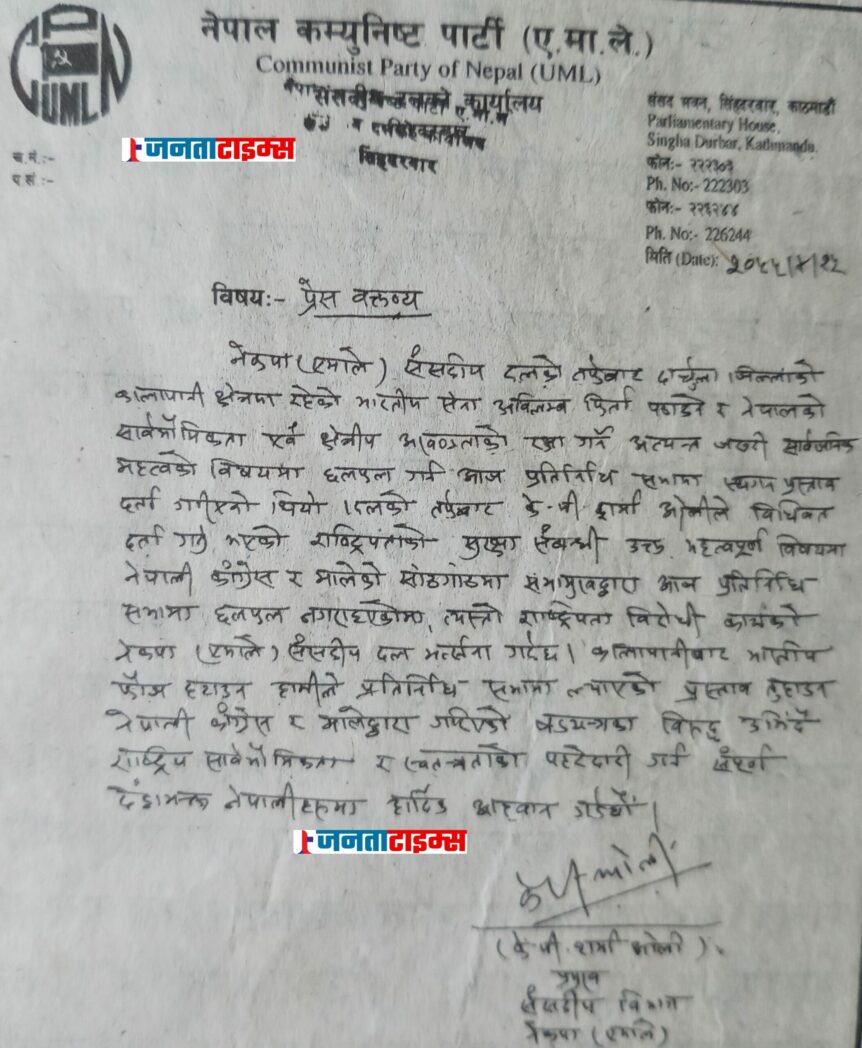 नेपाल कम्युनिष्ट पार्टी (ए.मा.ले.)
Communist Party of Nepal (UML)
UML
संसदीय दलको कार्यालय
सिंहदरवार
संसद भवन, सिंहदरवार, काठमाडौं
Parliamentary House,
Singha Durbar, Kathmandu.
फोन:- २२२३०३
Ph. No:- 222303
फोन:- २२६२४४
Ph. No:- 226244
मिति (Date): २०५५/४/१२
जनताटाइम्स
च.नं.:-
प.सं.:-
विषय:- प्रेस वक्तव्य
नेकपा (एमाले) संसदीय दलको तर्फबाट दार्चुला जिल्लाको
कालापानी क्षेत्रमा रहेको भारतीय सेना अविलम्ब फिर्ता पठाउने र नेपालको
सार्वभौमिकता एवं क्षेत्रीय अखण्डताको रक्षा गर्ने अत्यन्त जरुरी सार्वजनिक
महत्वको विषयमा छलफल गर्न आज प्रतिनिधि सभामा स्थगन प्रस्ताव
दर्ता गरीएको थियो । दलको तर्फबाट के.पी शर्मा ओलीले विधिवत
दर्ता गर्नु भएको राष्ट्रियताको सुरक्षा संबन्धी उक्त महत्वपूर्ण विषयमा
नेपाली काँग्रेस र मालेको साँठगाँठमा सभामुखद्वारा आज प्रतिनिधि
सभामा छलफल नगराइएकोमा, त्यस्तो राष्ट्रियता विरोधी कार्यको
नेकपा (एमाले) संसदीय दल भर्त्सना गर्दछ । कालापानीबाट भारतीय
फौज हटाउन हामीले प्रतिनिधि सभामा ल्याएको प्रस्ताव तुहाउन
नेपाली काँग्रेस र मालेद्वारा गरिएको षडयन्त्रका विरुद्ध उभिँदै
राष्ट्रिय सार्वभौमिकता र स्वतन्त्रताको पहरेदारी गर्न संपूर्ण
देशभक्त नेपालीहरुमा हार्दिक आहवान गर्दछौं ।
जनताटाइम्स
के पी ओली
(के.पी. शर्मा ओली)
प्रमुख
संसदीय विभाग
नेकपा (एमाले)